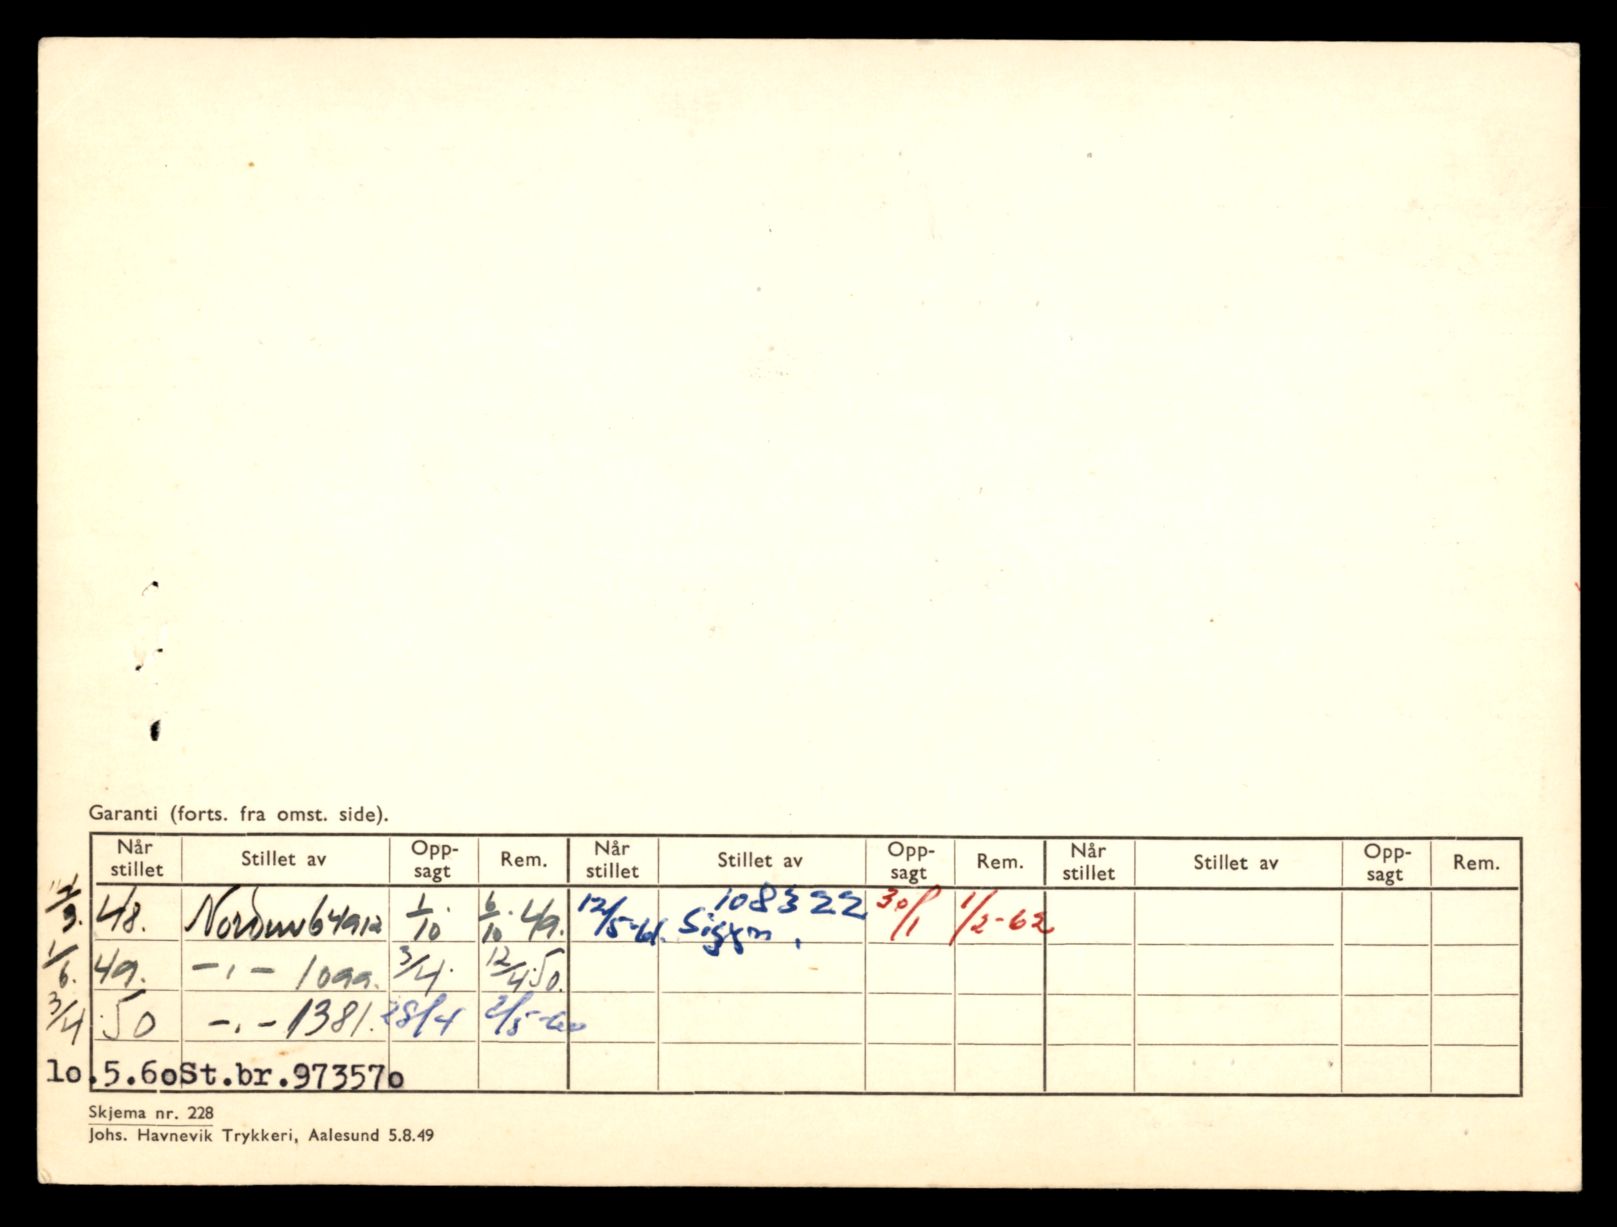 Garanti (forts. fra omst. side).
Når stillet Stillet av Opp- sagt Rem. Når stillet Stillet av Opp- sagt Rem. Når stillet Stillet av Opp- sagt Rem.
1/9. 48. 64912 1/10. 6/10. 49. 12/5-61. 108322 Sigyn. 30/1 1/2-62
1/6. 49. -,- 1099. 3/4. 12/4.50.
3/4 50 -,- 1381. 28/4 2/5-60
lo.5.6oSt.br.97357o
Skjema nr. 228
Johs. Havnevik Trykkeri, Aalesund 5.8.49